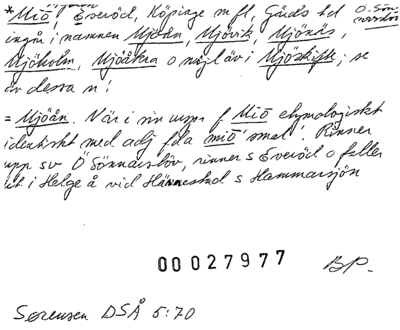 *Miö, Everöd, Köpinge m fl, Gärds hd Ö. Sön-
narslöv
ingår i namnen Mjöån, Mjövik, Mjönäs,
Mjöholm, Mjöåkra o möjl äv i Mjöskifte; se
av dessa n!
= Mjöån. Vår i sin uppr f Miö etymologiskt
identiskt med adj fda miö 'smal'. Rinner
upp sv Ö Sönnarslöv, rinner s Everöd o faller
ut i Helge å vid Hännestad s Hammarsjön
00027977 BP.
Sørensen DSÅ 5:70